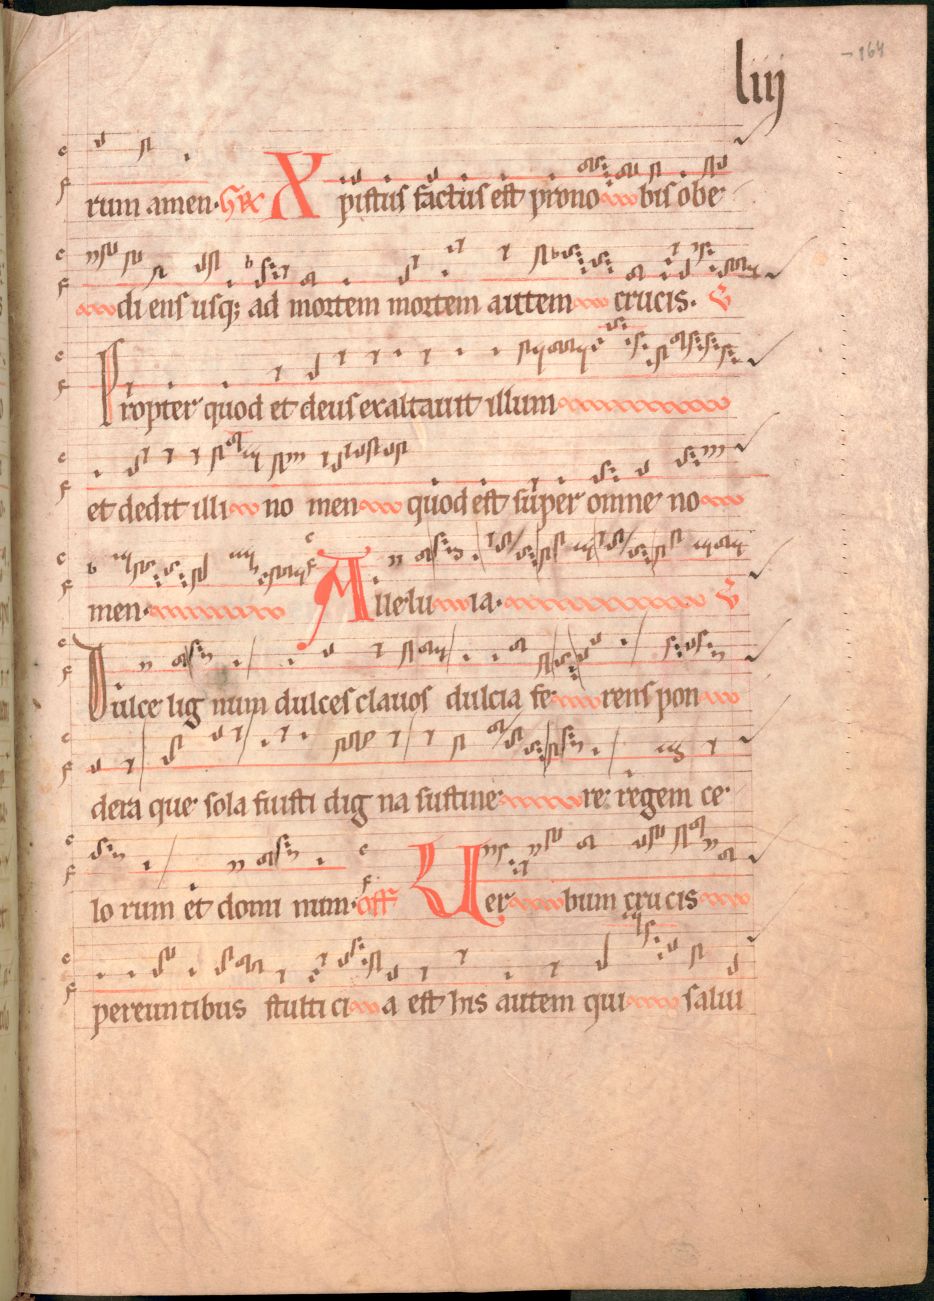 liij
164
rum amen. Gr̄ Xpistus factus est pro no bis obe
di ens usq; ad mortem mortem autem crucis. V̄
Propter quod et deus exaltavit illum
et dedit illi no men quod est super omne no
men. Allelu ia. V̄
Dulce lig num dulces clavos dulcia fe rens pon
dera que sola fuisti dig na sustine re regem ce
lo rum et domi num. off Uer bum crucis
pereuntibus stulti ci a est his autem qui salui